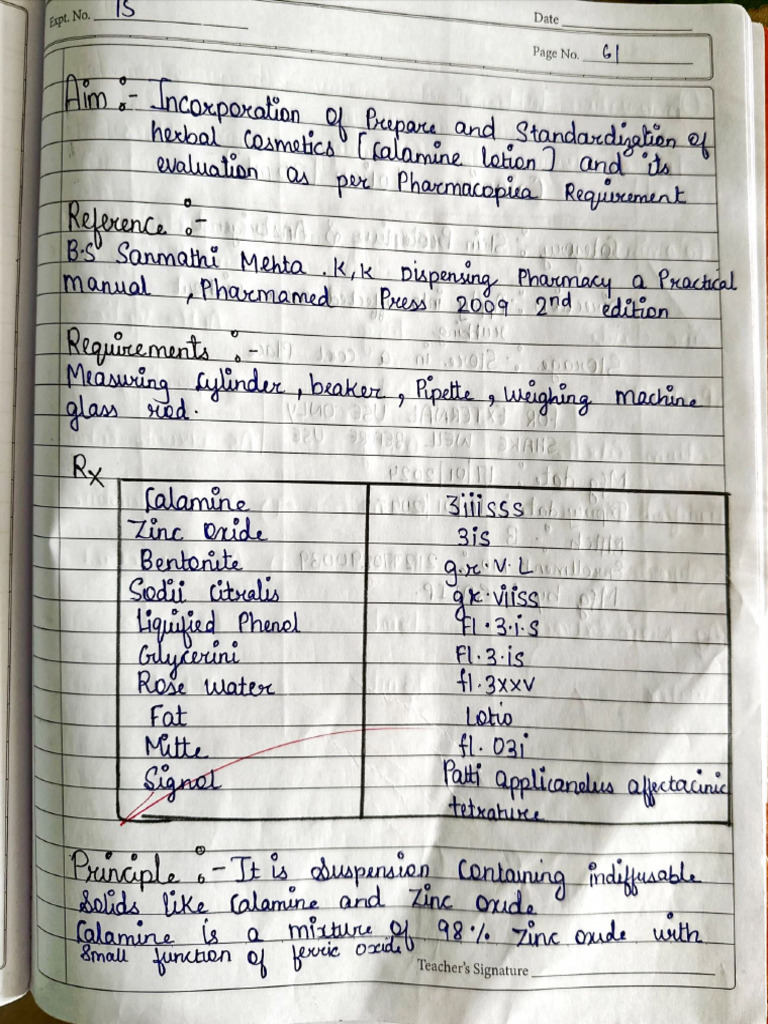 Expt. No. 15
Date
Page No. 61
Aim :- Incorporation of Prepare and Standardization of
herbal cosmetics [Calamine lotion] and its
evaluation as per Pharmacopiea Requirement
Reference :-
B.S Sanmathi Mehta .K,K Dispensing Pharmacy a Practical
manual , Pharmamed Press 2009 2nd edition
Requirements :-
Measuring Cylinder , beaker , Pipette , weighing machine
glass rod.
Rx
Calamine 3iiisss
Zinc Oxide 3is
Bentonite g.r.V.L
Sodii Citralis gr.viiss
Liquified Phenol fl.3.i.s
Glycerini Fl.3.is
Rose water fl.3xxv
Fat Lotio
Mitte fl.03i
Signal Patti applicandus affectacinic
tetrature
Principle :- It is Suspension Containing indiffusable
Solids like Calamine and Zinc oxide
Calamine is a mixture of 98% Zinc oxide with
small function of ferric oxide
Teacher's Signature